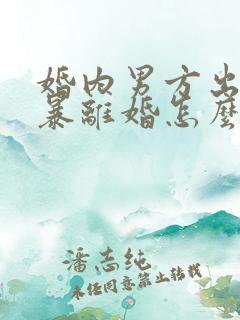 婚内男方出
暴離婚怎麼
潘志纯
未经同意禁止转载